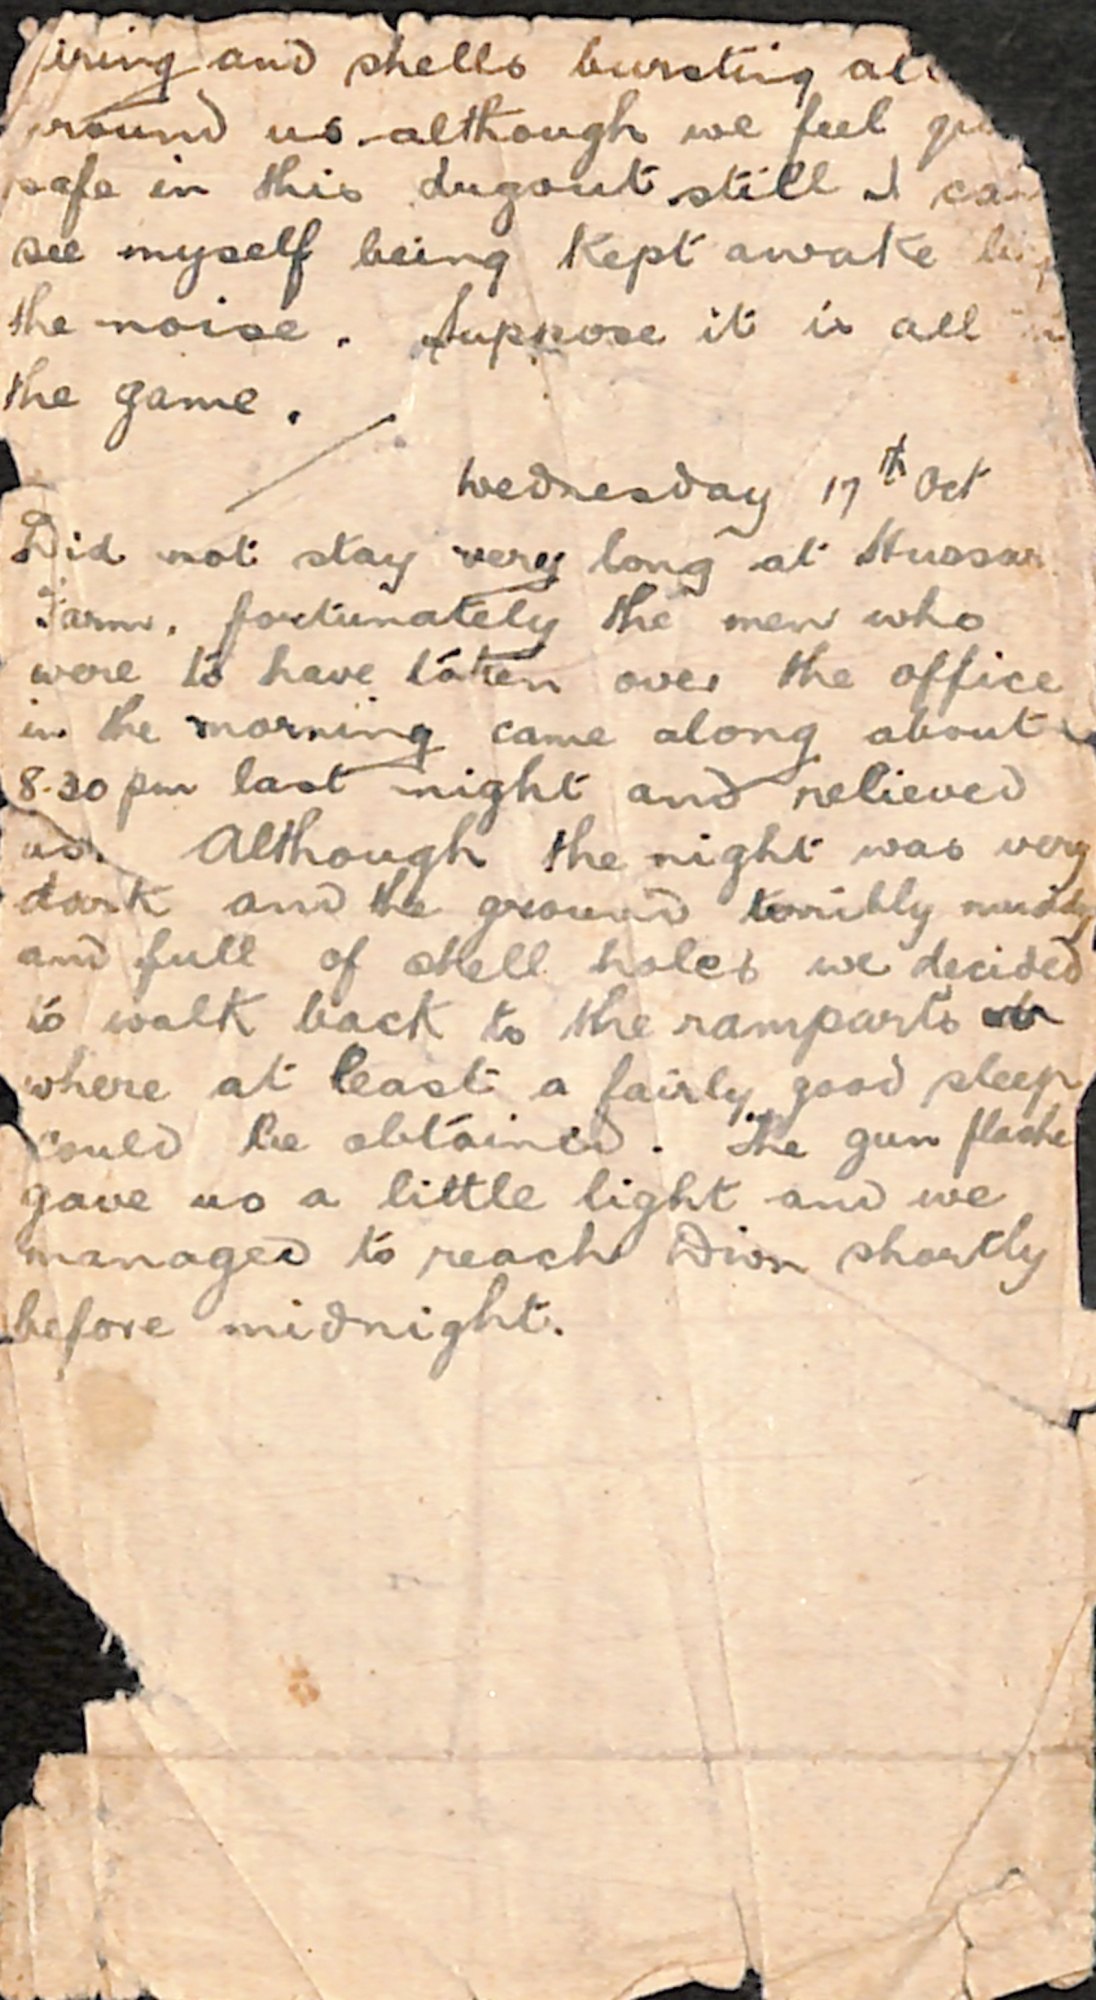 firing and shells bursting all
around us although we feel
safe in this dugout still I can
see myself being kept awake by
the noise. Suppose it is all in
the game.
Wednesday 17th Oct
Did not stay very long at Hussar
Farm. fortunately the men who
were to have taken over the office
in the morning came along about
8.30 pm last night and relieved
us. Although the night was very
dark and the ground terribly muddy
and full of shell holes we decided
to walk back to the ramparts
where at least a fairly good sleep
could be obtained. The gun flashe
gave us a little light and we
managed to reach Divn shortly
before midnight.